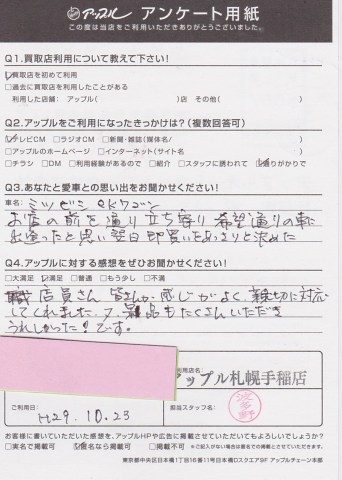 アップル アンケート用紙
この度は当店をご利用いただきありがとうございました。
Q1.買取店利用について教えて下さい!
☑買取店を初めて利用
□過去に買取店を利用したことがある
利用した店舗: アップル( )店 その他( )
Q2.アップルをご利用になったきっかけは?(複数回答可)
☑テレビCM □ラジオCM □新聞・雑誌(媒体名/ )
□アップルのホームページ □インターネット(サイト名 )
□チラシ □DM □利用経験があるので □紹介 □スタッフに誘われて ☑通りがかりで
Q3.あなたと愛車との思い出をお聞かせください!
車名: ミツビシ eKワゴン
お店の前を通り立ち寄り 希望通りの車に
出逢ったと思い翌日即買いをあっさりと決めた
Q4.アップルに対する感想をぜひお聞かせください!
□大満足 ☑満足 □普通 □もう少し □不満
店員さん 皆さんが 感じがよく、親切に対応
してくれました。 品もたくさんいただき
うれしかった!です。
ご利用店名:
アップル札幌手稲店
ご利用日: H29.10.23
担当スタッフ名: 波多野
お客様に書いていただいた感想を、アップルHPや広告に掲載させていただいてもよろしいでしょうか?
□実名で掲載可 ☑匿名なら掲載可 □掲載不可 ※ご記入がない場合は匿名での掲載とさせていただきます。
東京都中央区日本橋1丁目16番11号日本橋Dスクエア9F アップルチェーン本部